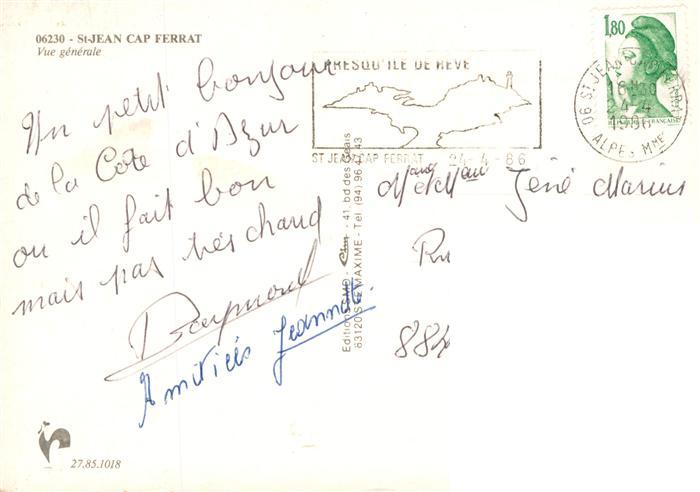 06230 - St-JEAN CAP FERRAT
Vue générale
Un petit bonjour
de la Côte d'Azur
ou il fait bon
mais pas très chaud
Raymond
Amitiés Jeannette.
27.85.1018
PRESQU'ILE DE REVE
ST JEAN CAP FERRAT 24-4-86
1,80
06 ST JEAN CAP FERRAT
16H30
24-4
1986
ALPES MMES
Editions - 41, bd des
83120 STE MAXIME - Tél (94) 96 43
René Marius
Ru
884